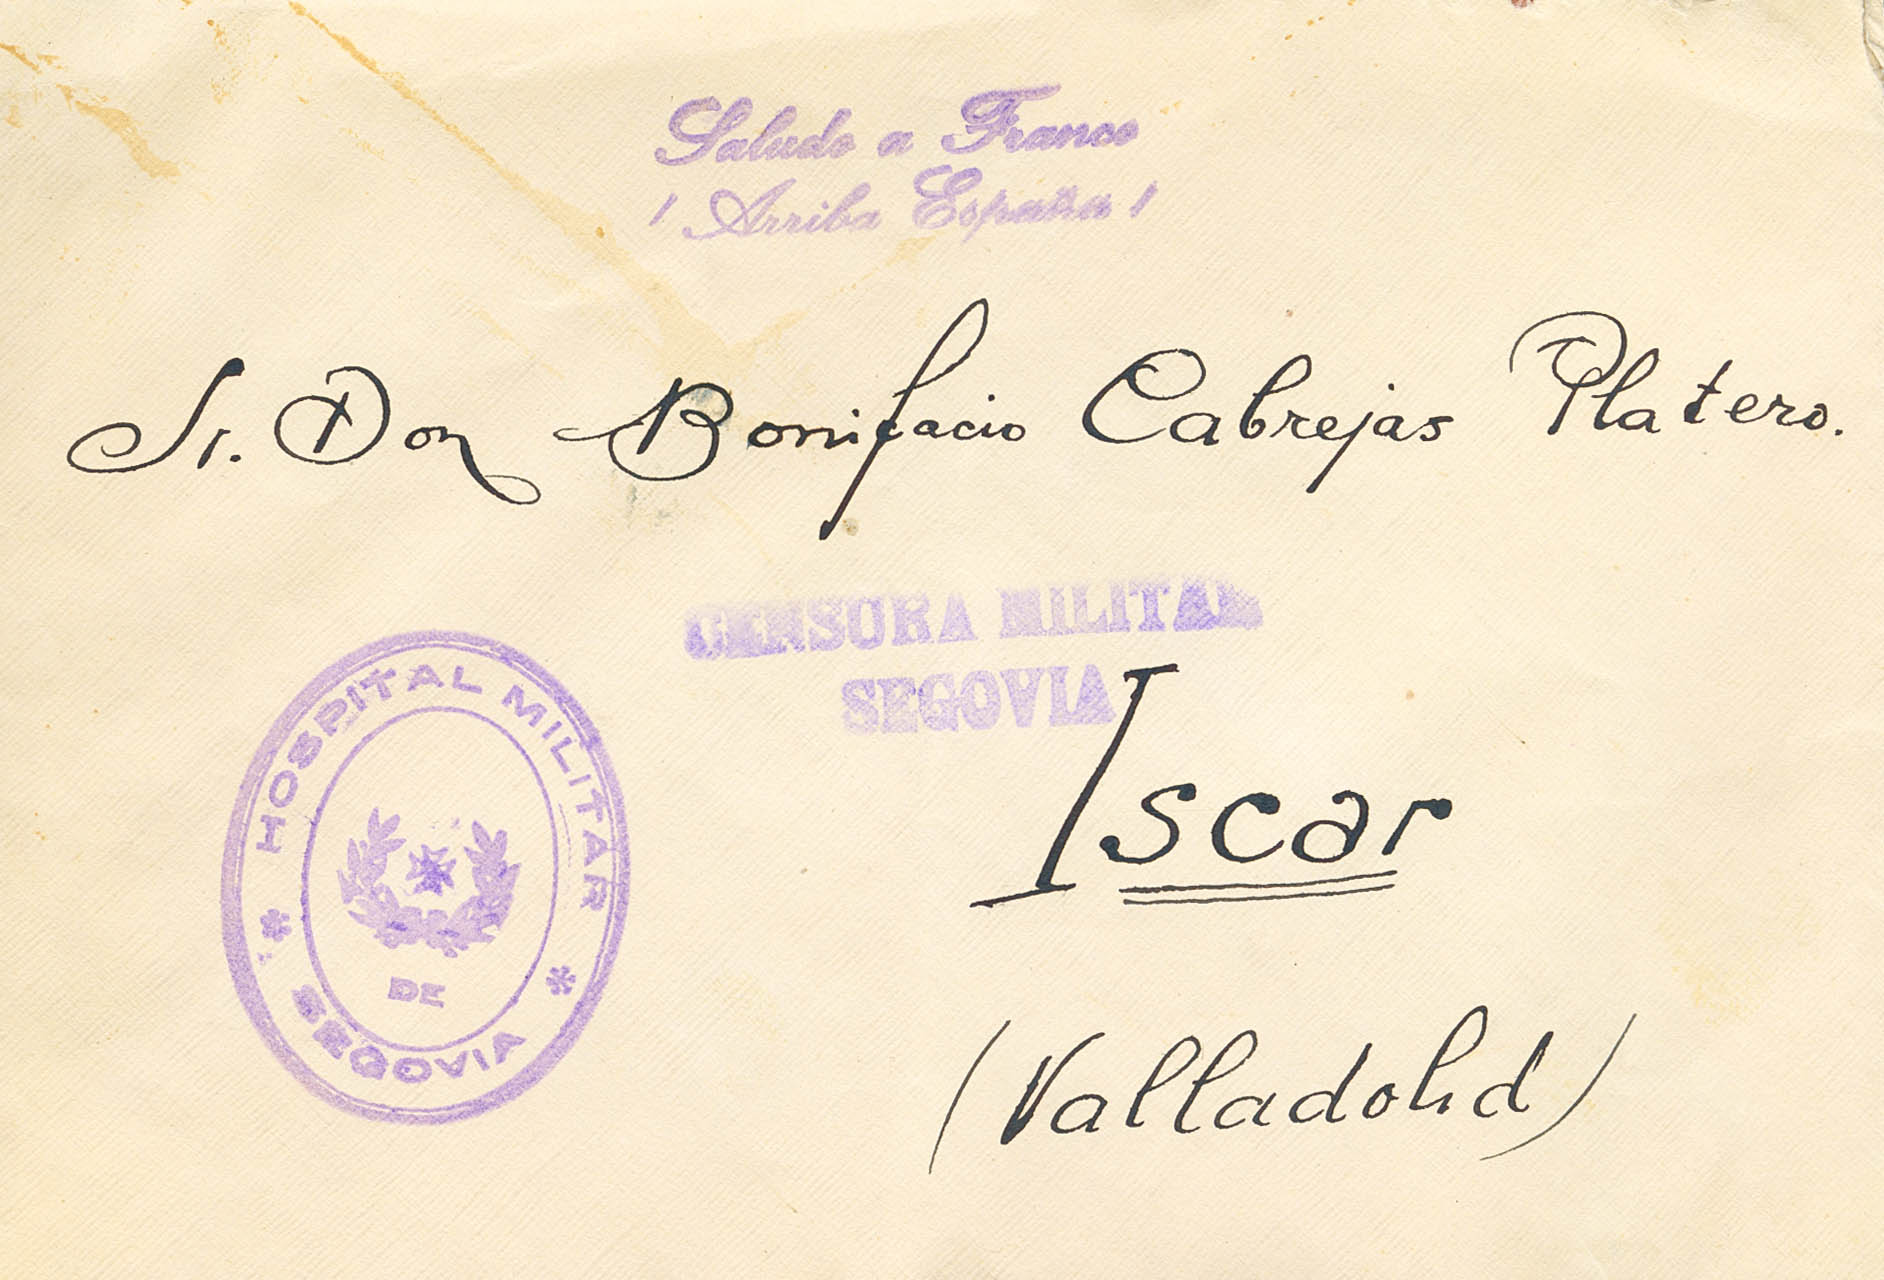 Saludo a Franco
¡Arriba España!
Sr. Don Bonifacio Cabrejas Platero.
CENSURA MILITAR
SEGOVIA
Iscar
(Valladolid)
HOSPITAL MILITAR
DE
SEGOVIA